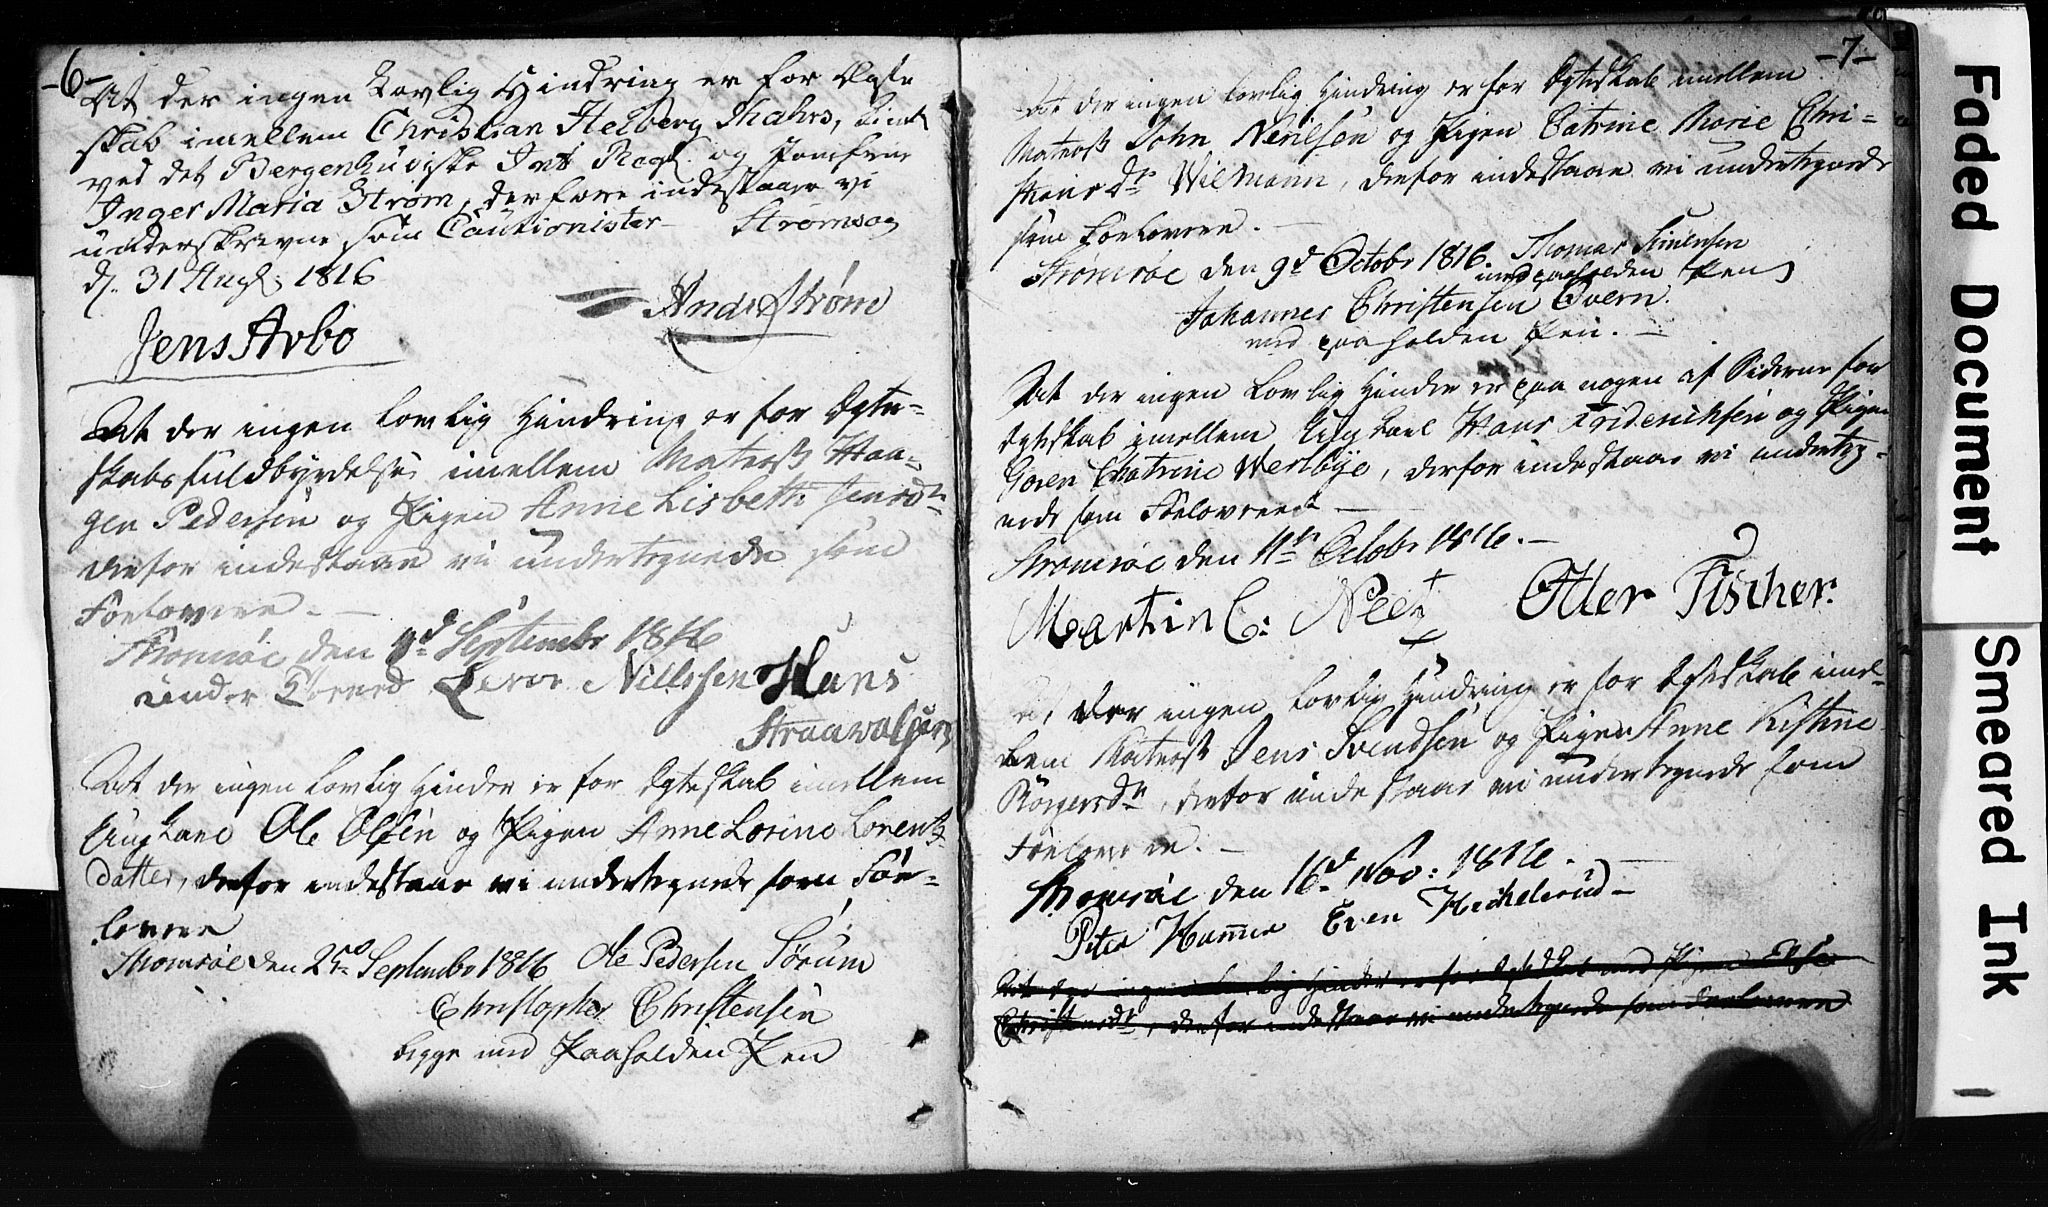 -6-
At der ingen Lovlig Hindring er for Ægte
skab imellem Christian Helberg Thahrs, Lieut
ved det Bergenhuusiske Inf: Reg: og Jomfrue
Inger Maria Strøm, derfore indestaaer vi
underskrevne som Cautionister Strømsøe
d. 31 Aug: 1816
Jens Arbo
And: Strøm
At der ingen lovlig Hindring er for Ægte-
skabs fuldbyrdelse imellem Matros Haa-
gen Pedersen og Pigen Anne Lisbeth Jensdtr
derfor indestaae vi undertegnede som
Forlovere. -
Strømsøe den 9d Septembr 1816
under Nillssen Hans
At der ingen Lovlig Hinder er for Ægteskab imellem
Ungkarl Ole Olsen og Pigen Anne Lorine Lorentz
datter, derfor indestaae vi undertegnede som For-
lovere
Strømsøe den 25de Septembr 1816 Ole Pedersen Sørum
Christopher Christensen
begge med Paaholden Pen
-7-
At der ingen lovlig Hindring er for Ægteskab imellem
Matros John Nenilsen og Pigen Catrine Marie Chri-
stensdtr Wilmann, derfor indestaae vi undertegnede
som Forlovere. -
Strømsøe den 9d Octobr 1816. Thomas Simensen
med paaholden Pen
Johannes Christensen Qvern
med paaholden Pen. -
At der ingen Lovlig Hinder er paa nogen af Siderne for
Ægteskab imellem Ungkarl Hans Friderichsen og Pigen
Goren Chatrine Werlbye, derfor indestaae vi underteg-
nede som Forlovere -
Strømsøe den 11te Octobr 1816. -
Martin C: Peet Otter Fischer.
At der ingen lovlig Hindring er for Ægteskab imel-
lem Matros Jens Svendsen og Pigen Anne Kistine
Børgersdtr, derfor indestaae vi undertegnede som
Forlovere. -
Strømsøe den 16d Nov: 1816. -
Peter Hammer Even Hechelerud -
At der ingen lovlig Hinder er for Ægteskab med Pigen Else
Christensdtr, derfor indestaae vi undertegnede som Forlovere
Faded Document
Smeared Ink